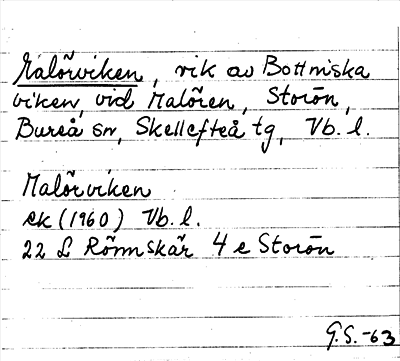 Malörviken, vik av Bottniska
viken, vid Malören, Storön,
Bureå sn, Skellefteå tg, Vb. l.
Malörviken
ek (1960) Vb. l.
22 L Rönnskär 4 e Storön
G.S. -63